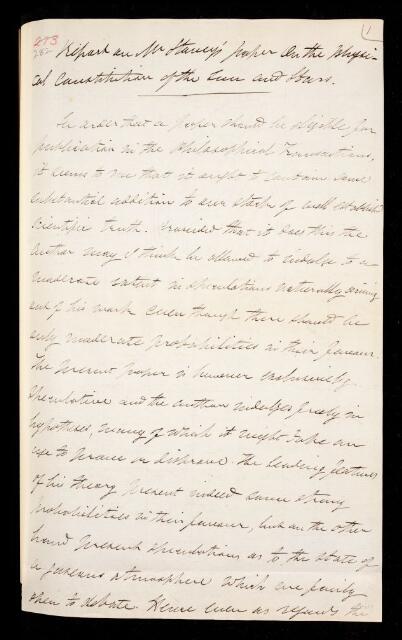 1
273
282
Report on Mr Stoney's paper On the Physi-
cal Constitution of the Sun and Stars.
In order that a paper should be eligible for
publication in the Philosophical Transactions,
it seems to me that it ought to contain some
substantial addition to our stock of well establish
scientific truth. Provided that it does this the
author may I think be allowed to indulge to a
moderate extent in speculations naturally arising
out of his work even though there should be
only moderate probabilities in their favour.
The present paper is however exclusively
speculative and the author indulges freely in
hypotheses, many of which it might take an
age to prove or disprove. The leading features
of his theory present indeed some strong
probabilities in their favour, but on the other
hand present speculations as to the state of
a gaseous atmosphere which are fairly
open to debate. Hence even as regards the